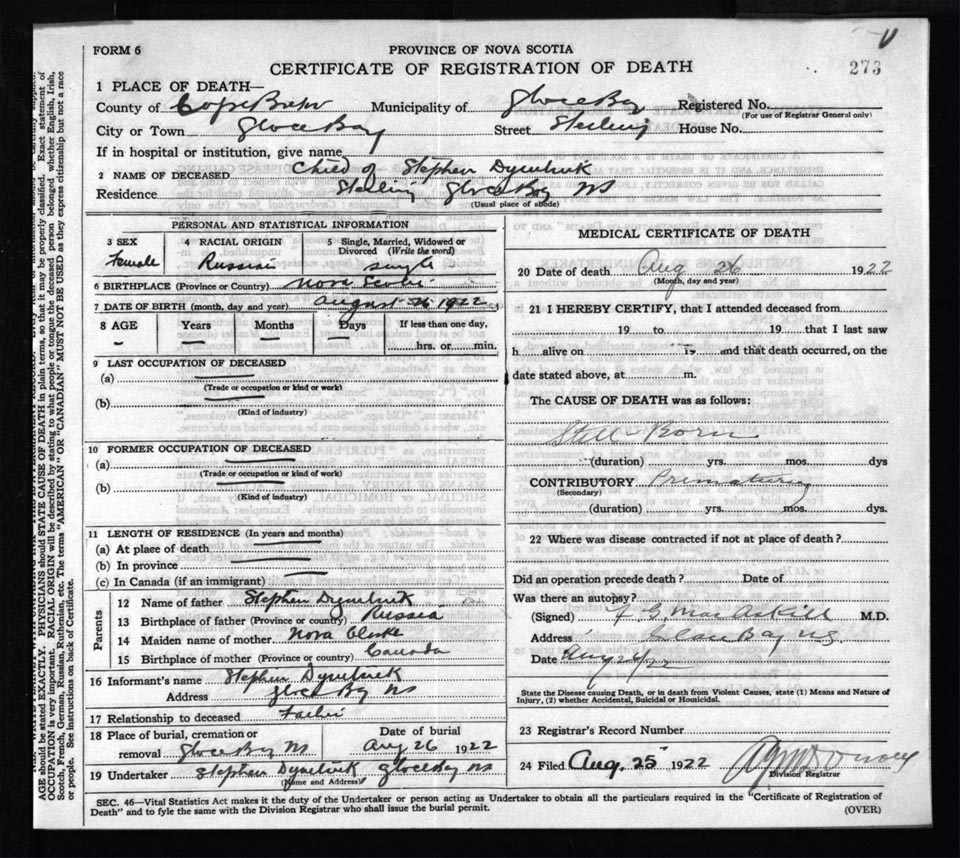 FORM 6
PROVINCE OF NOVA SCOTIA
CERTIFICATE OF REGISTRATION OF DEATH
273
1 PLACE OF DEATH—
County of Cape Breton Municipality of Glace Bay Registered No.
(For use of Registrar General only)
City or Town Glace Bay Street Sterling House No.
If in hospital or institution, give name
2 NAME OF DECEASED Child of Stephen
Residence Sterling Glace Bay NS
(Usual place of abode)
PERSONAL AND STATISTICAL INFORMATION
3 SEX 4 RACIAL ORIGIN 5 Single, Married, Widowed or Divorced (Write the word)
Female Russian single
6 BIRTHPLACE (Province or Country) Nova Scotia
7 DATE OF BIRTH (month, day and year) August 1922
8 AGE Years Months Days If less than one day,
hrs. or min.
9 LAST OCCUPATION OF DECEASED
(a)
(Trade or occupation or kind or work)
(b)
(Kind of industry)
10 FORMER OCCUPATION OF DECEASED
(a)
(Trade or occupation or kind or work)
(b)
(Kind of industry)
11 LENGTH OF RESIDENCE (In years and months)
(a) At place of death
(b) In province
(c) In Canada (if an immigrant)
Parents
12 Name of father Stephen
13 Birthplace of father (Province or country) Russia
14 Maiden name of mother Nova
15 Birthplace of mother (Province or country) Canada
16 Informant's name Stephen
Address Glace Bay NS
17 Relationship to deceased Father
18 Place of burial, cremation or Date of burial
removal Glace Bay NS Aug 26 1922
19 Undertaker Stephen Glace Bay NS
(Name and Address)
MEDICAL CERTIFICATE OF DEATH
20 Date of death Aug 26 1922
(Month, day and year)
21 I HEREBY CERTIFY, that I attended deceased from
19 to 19 that I last saw
h alive on 19 and that death occurred, on the
date stated above, at m.
The CAUSE OF DEATH was as follows:
Still Born
(duration) yrs. mos. dys
CONTRIBUTORY Prematurity
(Secondary)
(duration) yrs. mos. dys.
22 Where was disease contracted if not at place of death?
Did an operation precede death? Date of
Was there an autopsy?
(Signed) M.D.
Address Glace Bay NS
Date
State the Disease causing Death, or in death from Violent Causes, state (1) Means and Nature of
Injury, (2) whether Accidental, Suicidal or Homicidal.
23 Registrar's Record Number
24 Filed Aug. 25 1922
Division Registrar
SEC. 46—Vital Statistics Act makes it the duty of the Undertaker or person acting as Undertaker to obtain all the particulars required in the "Certificate of Registration of
Death" and to fyle the same with the Division Registrar who shall issue the burial permit.
(OVER)
AGE should be stated EXACTLY. PHYSICIANS should STATE CAUSE OF DEATH in plain terms, so that it may be properly classified. Exact statement of
OCCUPATION is very important. RACIAL ORIGIN will be described by stating to what people or tongue the deceased person belonged whether English, Irish,
Scotch, French, German, Russian, Ruthenian, etc. The terms "AMERICAN" OR "CANADIAN" MUST NOT BE USED as they express citizenship but not a race
or people. See instructions on back of Certificate.